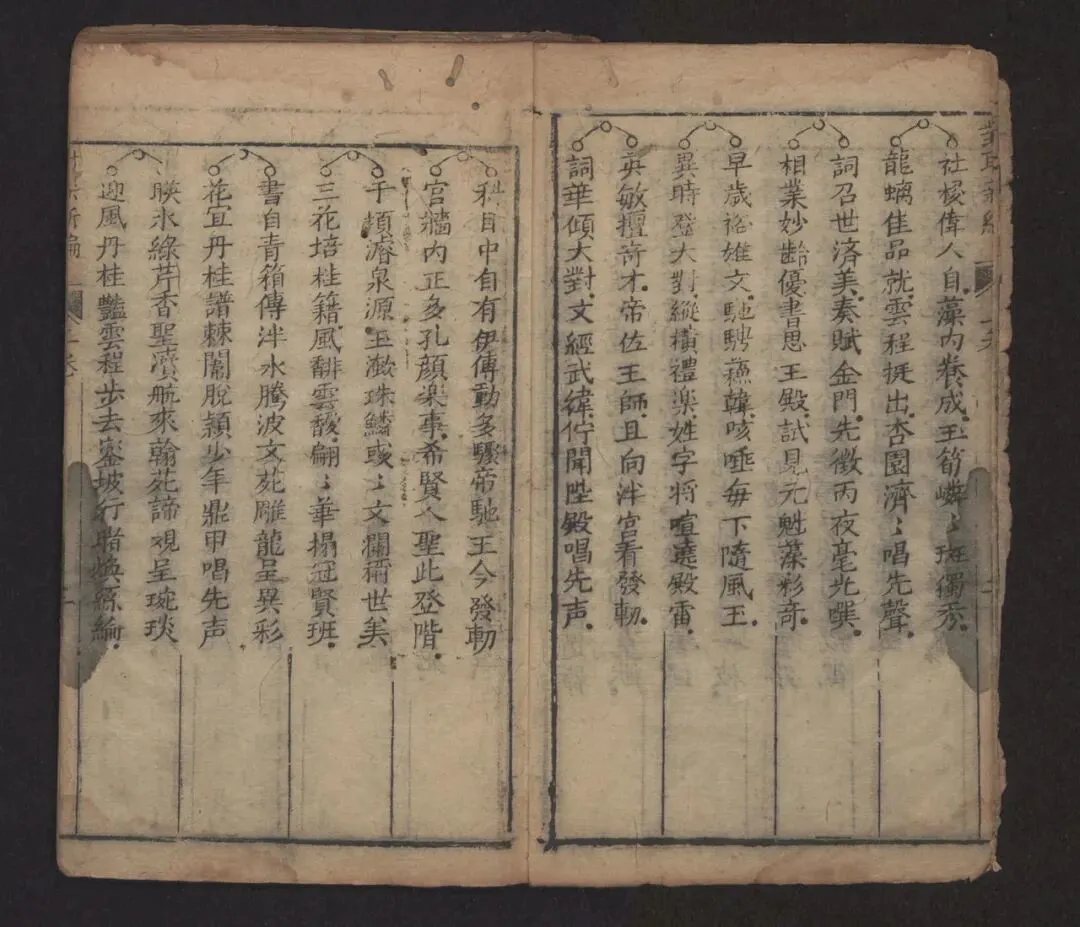 社稷偉人自藻內巻成玉筍嶙〻班獨秀
龍螭佳品就雲程挺出杏園濟〻唱先聲
詞召世済美奏賦金門先徴丙夜毫光噀
相業妙齡優書思王殿試見元魁藻彩奇
早歲裕雄文馳騁蘓韓咳唾毎下隨風玉
異時登大對縱横禮楽姓字将喧遶殿雷
英敏擅竒才帝佐王師且向泮宫看發軔
詞華傾大對文經武緯佇聞陛殿唱先声
科目中自有伊傳勳多驟帝馳王今發軔
宫牆内正多孔顔楽事希賢入聖此登階
千頃濬泉源玉潡珠鱗彧〻文瀾禰世美
三花培桂籍風翻雲馥翩〻華揚冠賢班
書自青箱傳泮水騰波文苑雕龍呈異彩
花冝丹桂譜棘闈脫穎少年鼎甲唱先声
聨氷緑芹香聖濱航來翰苑諦觀呈琬琰
迎風丹桂豔雲程步去鑾坡行睹煥絲綸